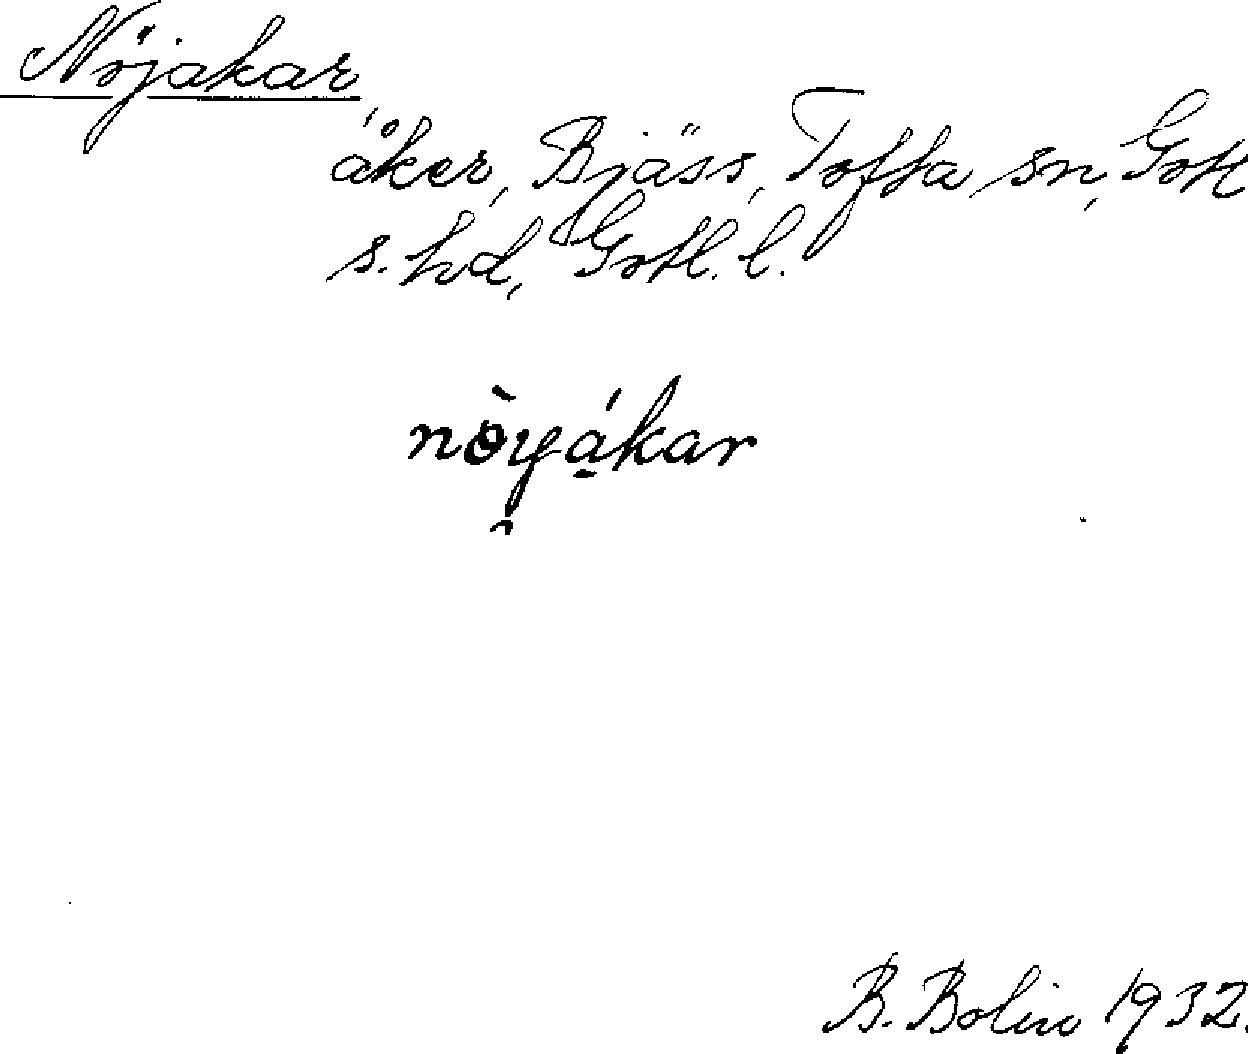 Nöjakar
åker, Bjäss, Tofta sn, Gotl
s. hd, Gotl. l.
nòyákar
B. Bolin 1932.